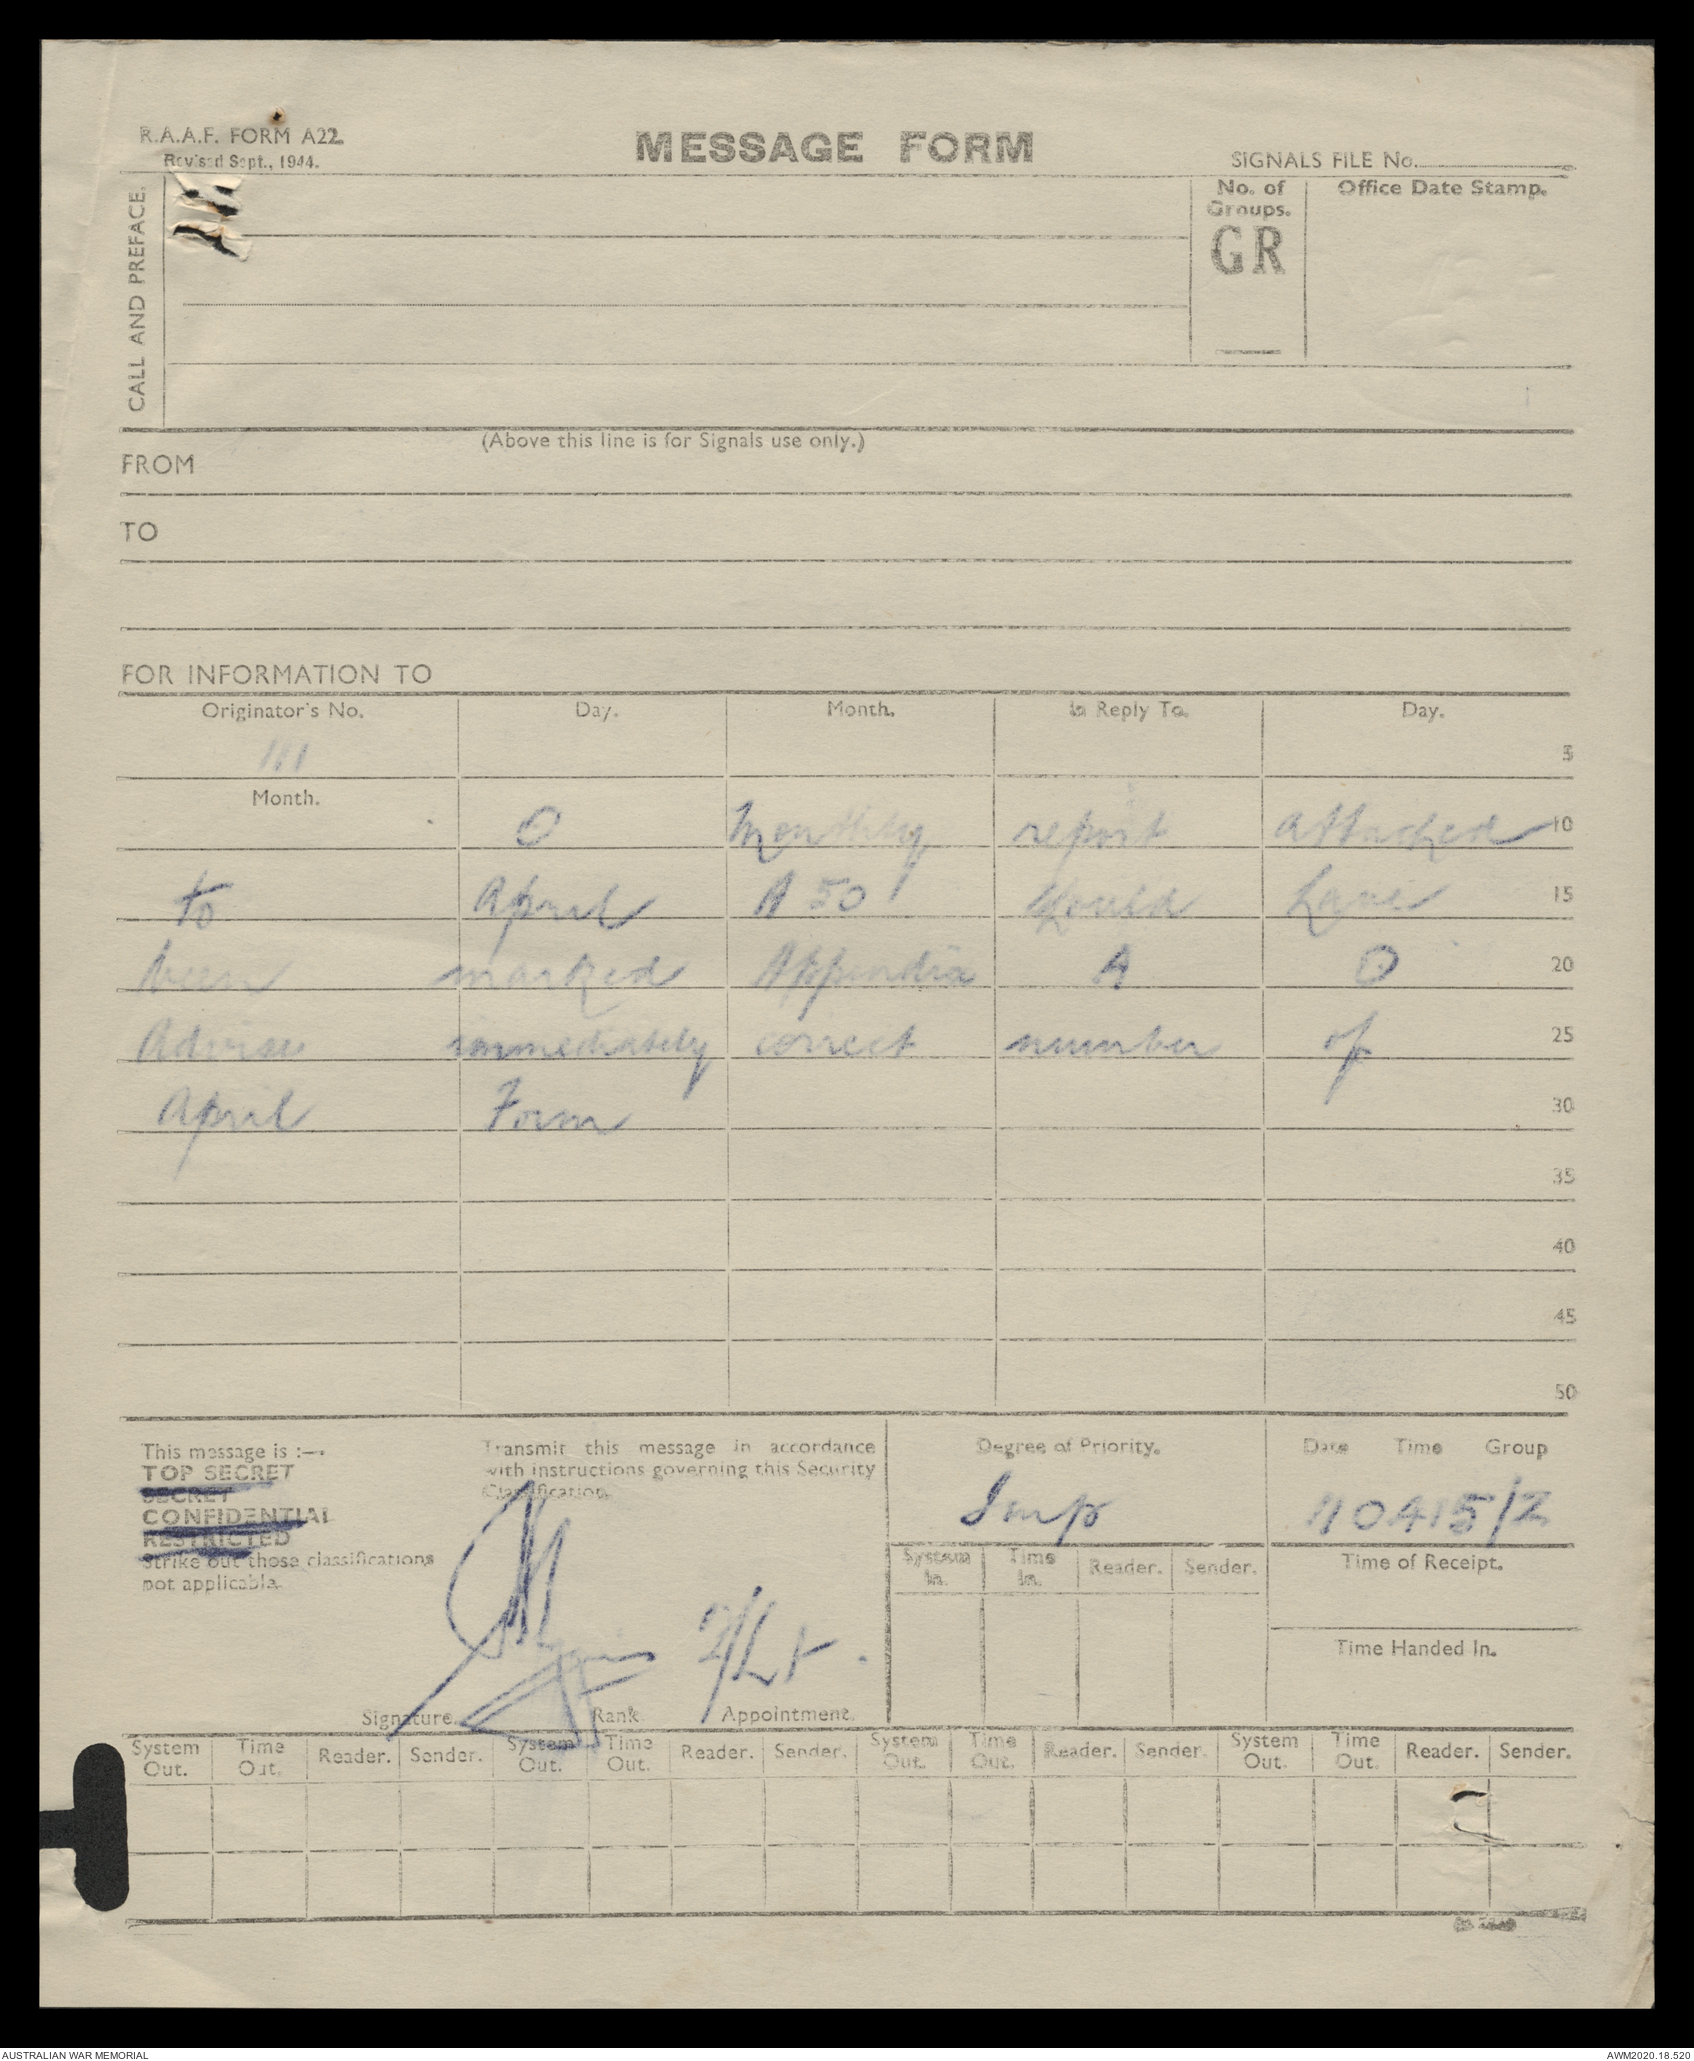 R.A.A.F. FORM A22.
Revised Sept., 1944.
MESSAGE FORM
SIGNALS FILE No.
CALL AND PREFACE.
No. of Groups.
GR
Office Date Stamp.
(Above this line is for Signals use only.)
FROM
TO
FOR INFORMATION TO
Originator's No. Day. Month. In Reply To. Day.
111 5
Month.
O Monthly report attached 10
to April A 50 should have 15
been marked Appendix A O 20
Advise immediately correct number of 25
April Form 30
35
40
45
50
This message is :—
TOP SECRET
SECRET
CONFIDENTIAL
RESTRICTED
Strike out those classifications
not applicable.
Transmit this message in accordance
with instructions governing this Security
Classification.
F/Lt.
Signature. Rank Appointment.
Degree of Priority.
Imp
System In. Time In. Reader. Sender.
Date Time Group
110415/Z
Time of Receipt.
Time Handed In.
System Out. Time Out. Reader. Sender. System Out. Time Out. Reader. Sender. System Out. Time Out. Reader. Sender. System Out. Time Out. Reader. Sender.
AUSTRALIAN WAR MEMORIAL
AWM2020.18.520